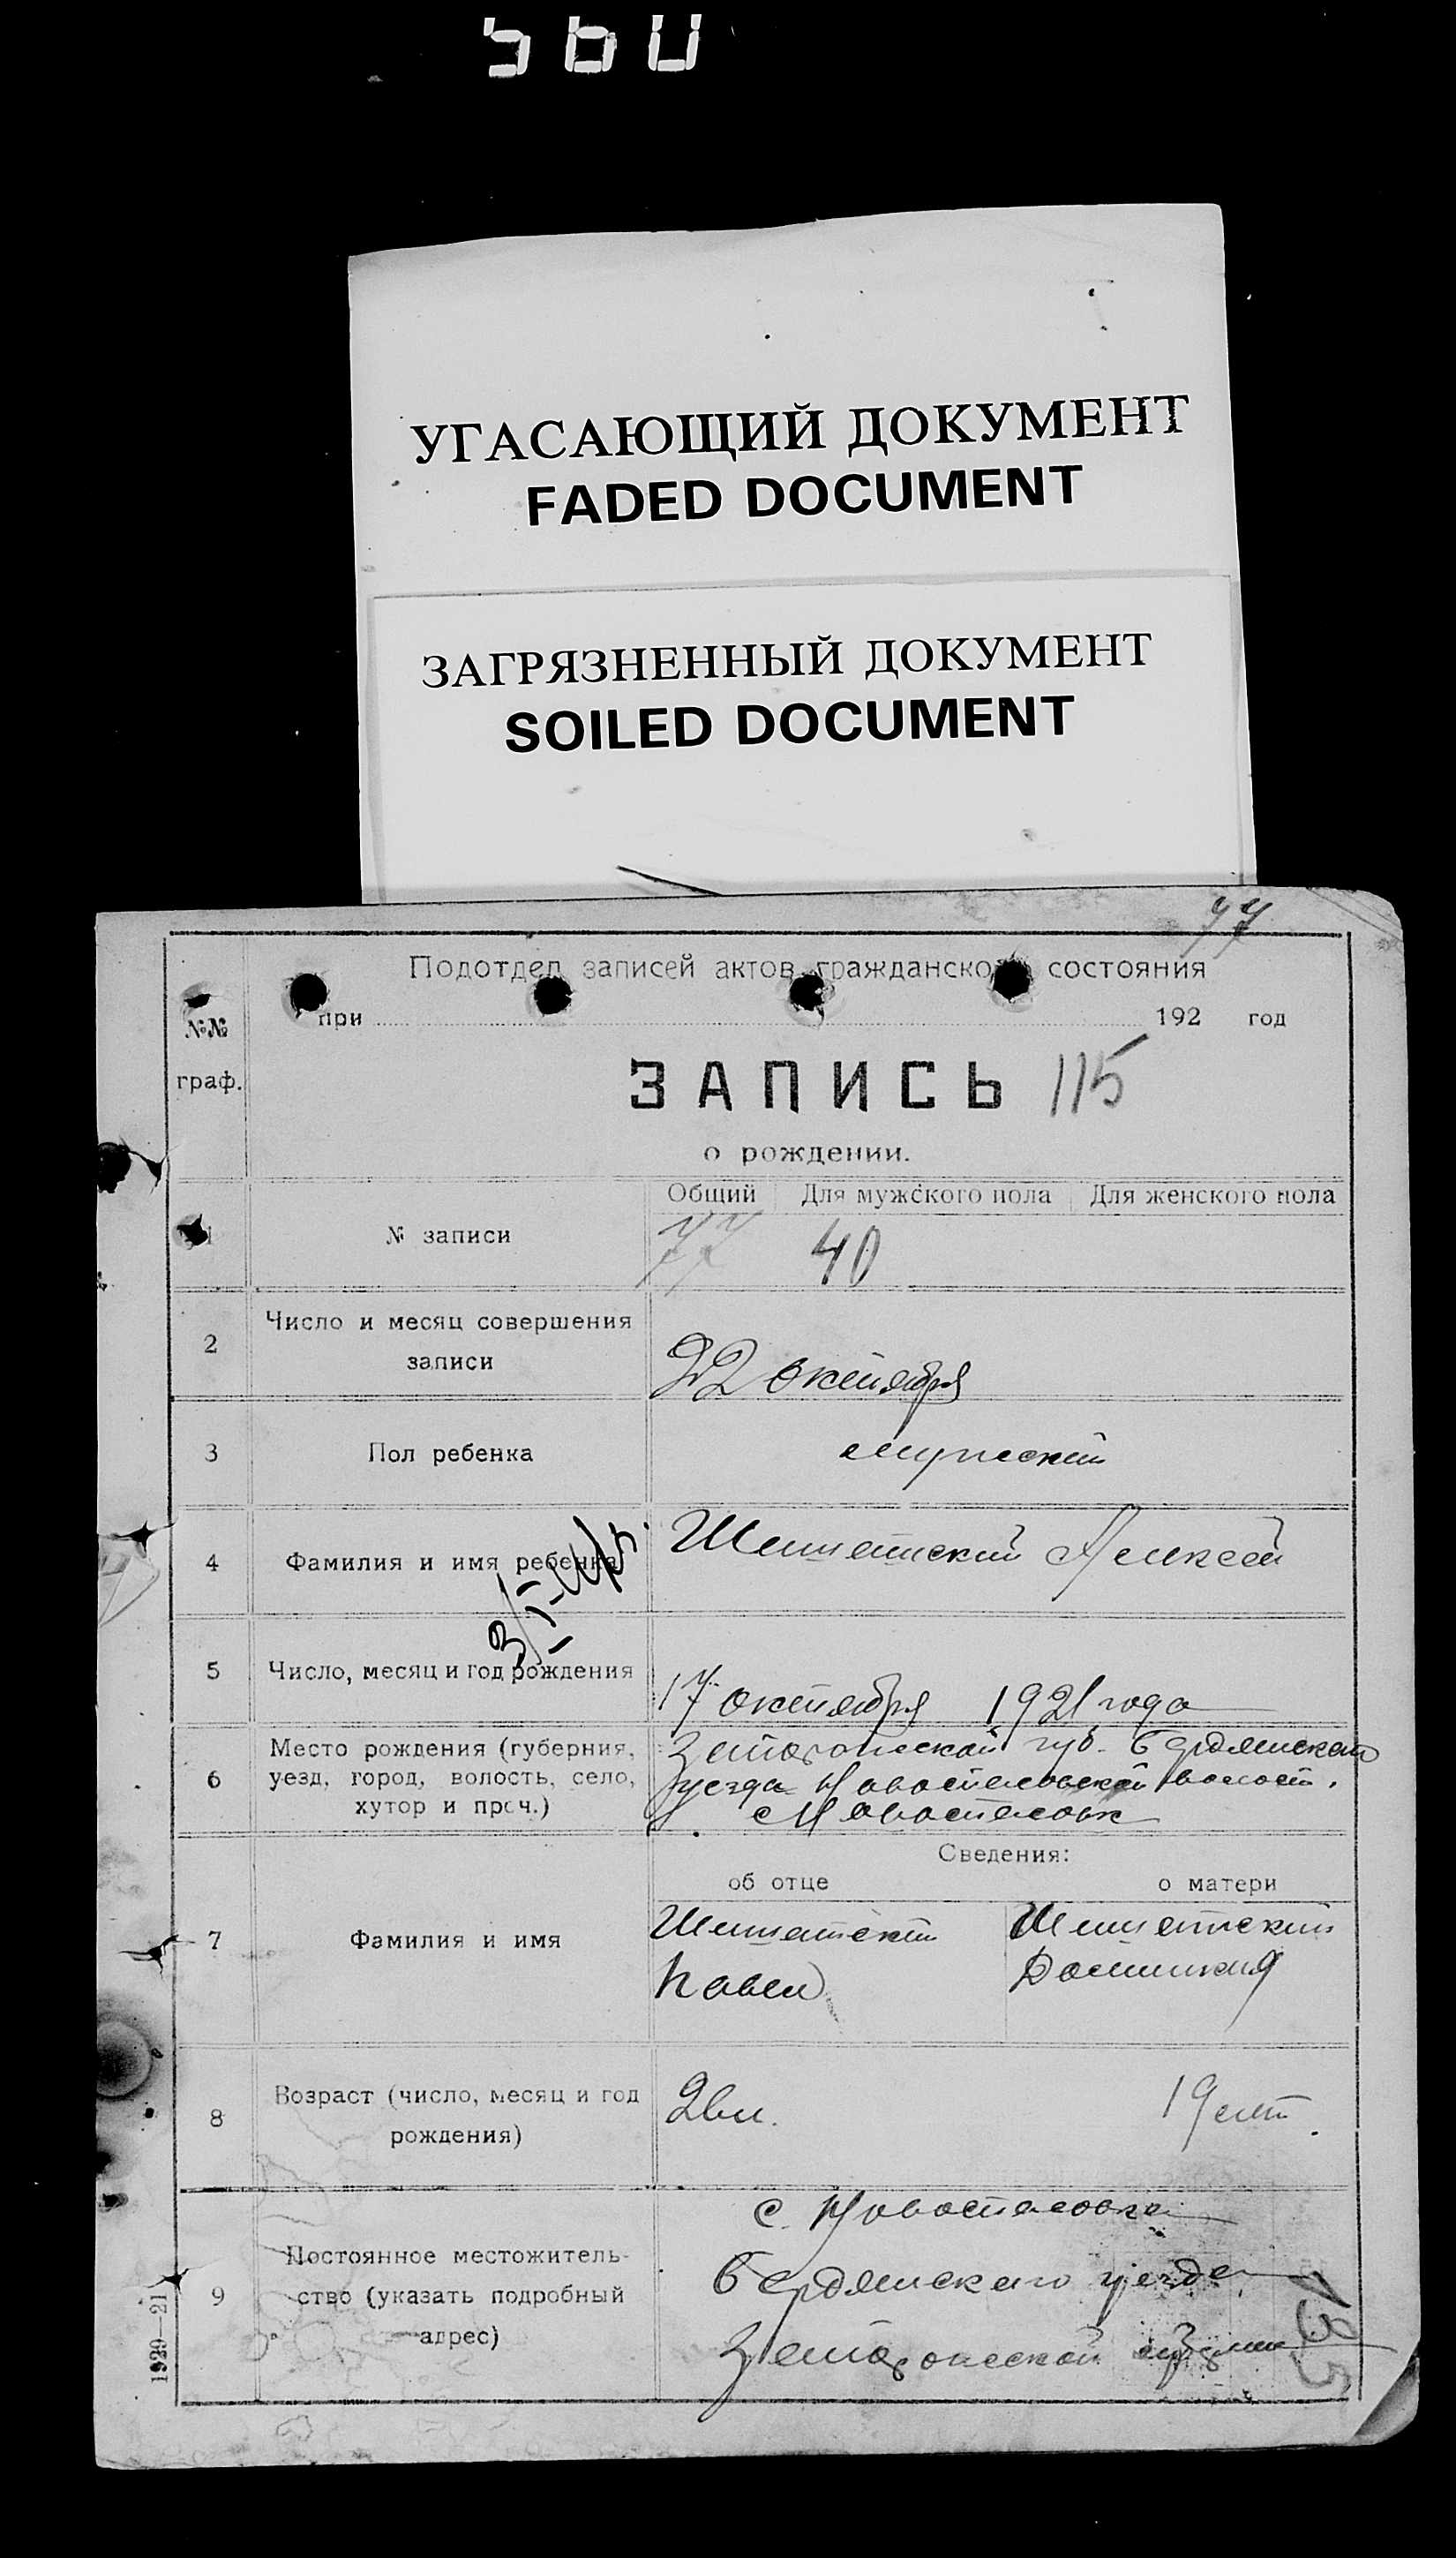 560
УГАСАЮЩИЙ ДОКУМЕНТ
FADED DOCUMENT
ЗАГРЯЗНЕННЫЙ ДОКУМЕНТ
SOILED DOCUMENT
77
Подотдел записей актов гражданского состояния
при 192 год
№№
граф.
ЗАПИСЬ 115
о рождении.
Общий Для мужского пола Для женского пола
1 № записи 77 40
2 Число и месяц совершения
записи
22 октября
3 Пол ребенка мужской
4 Фамилия и имя ребенка Алексей
5 Число, месяц и год рождения 17 октября 1921 года
6 Место рождения (губерния,
уезд, город, волость, село,
хутор и проч.)
губ. Бердянского
уезда Новоспасовской волост.
с Новоспасовк
Сведения:
об отце о матери
7 Фамилия и имя
Павел
8 Возраст (число, месяц и год
рождения)
19 лет.
9 Постоянное местожитель-
ство (указать подробный
адрес)
с. Новоспасовка
Бердянского уезда
135
1920—21